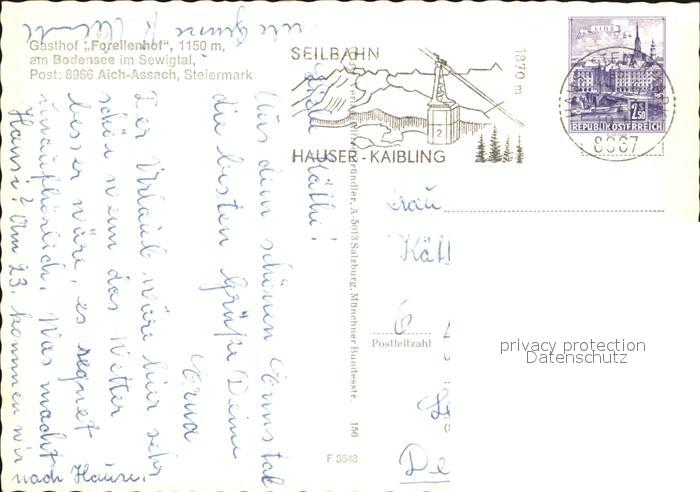 Gasthof „Forellenhof", 1150 m,
am Bodensee im Sewigtal,
Post: 8966 Aich-Assach, Steiermark
SEILBAHN
1870 m
2
HAUSER-KAIBLING
LINZ
2.50
REPUBLIK ÖSTERREICH
8967
Käthi!
Aus dem schönen Ennstal
die besten Grüße Deine
Erna
Der Urlaub wäre hier sehr
schön wenn das Wetter
besser wäre, es regnet
unaufhörlich. Was macht
Hansi? Am 23. kommen wir
nach Hause.
A-5013 Salzburg, Münchner Bundesstr. 156
F 3643
Frau
6
Postleitzahl
privacy protection
Datenschutz